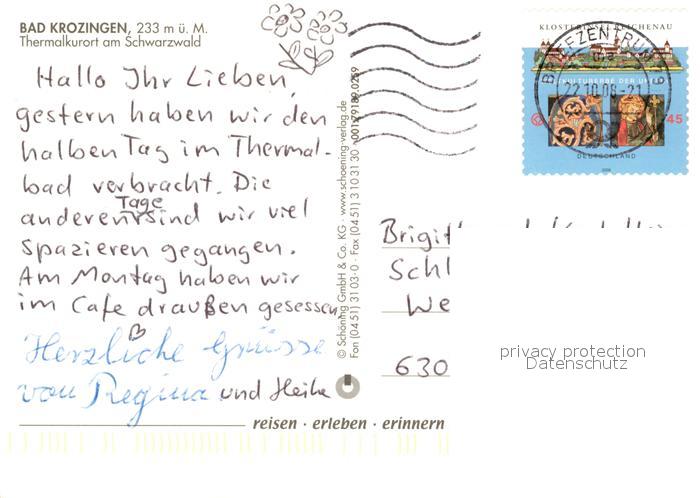 BAD KROZINGEN, 233 m ü. M.
Thermalkurort am Schwarzwald
Hallo Ihr Lieben,
gestern haben wir den
halben Tag im Thermal-
bad verbracht. Die
anderen Tage sind wir viel
spazieren gegangen.
Am Montag haben wir
im Cafe draußen gesessen
Herzliche Grüsse
von Regina und Heike
© Schöning GmbH & Co. KG · www.schoening-verlag.de
Fon (0451) 31 03-0 · Fax (0451) 3 10 31 30 · 001 79189 0259
reisen · erleben · erinnern
KLOSTERINSEL REICHENAU
BRIEFZENTRUM
22.10.08-21
45
DEUTSCHLAND
Schl
We
630
privacy protection
Datenschutz